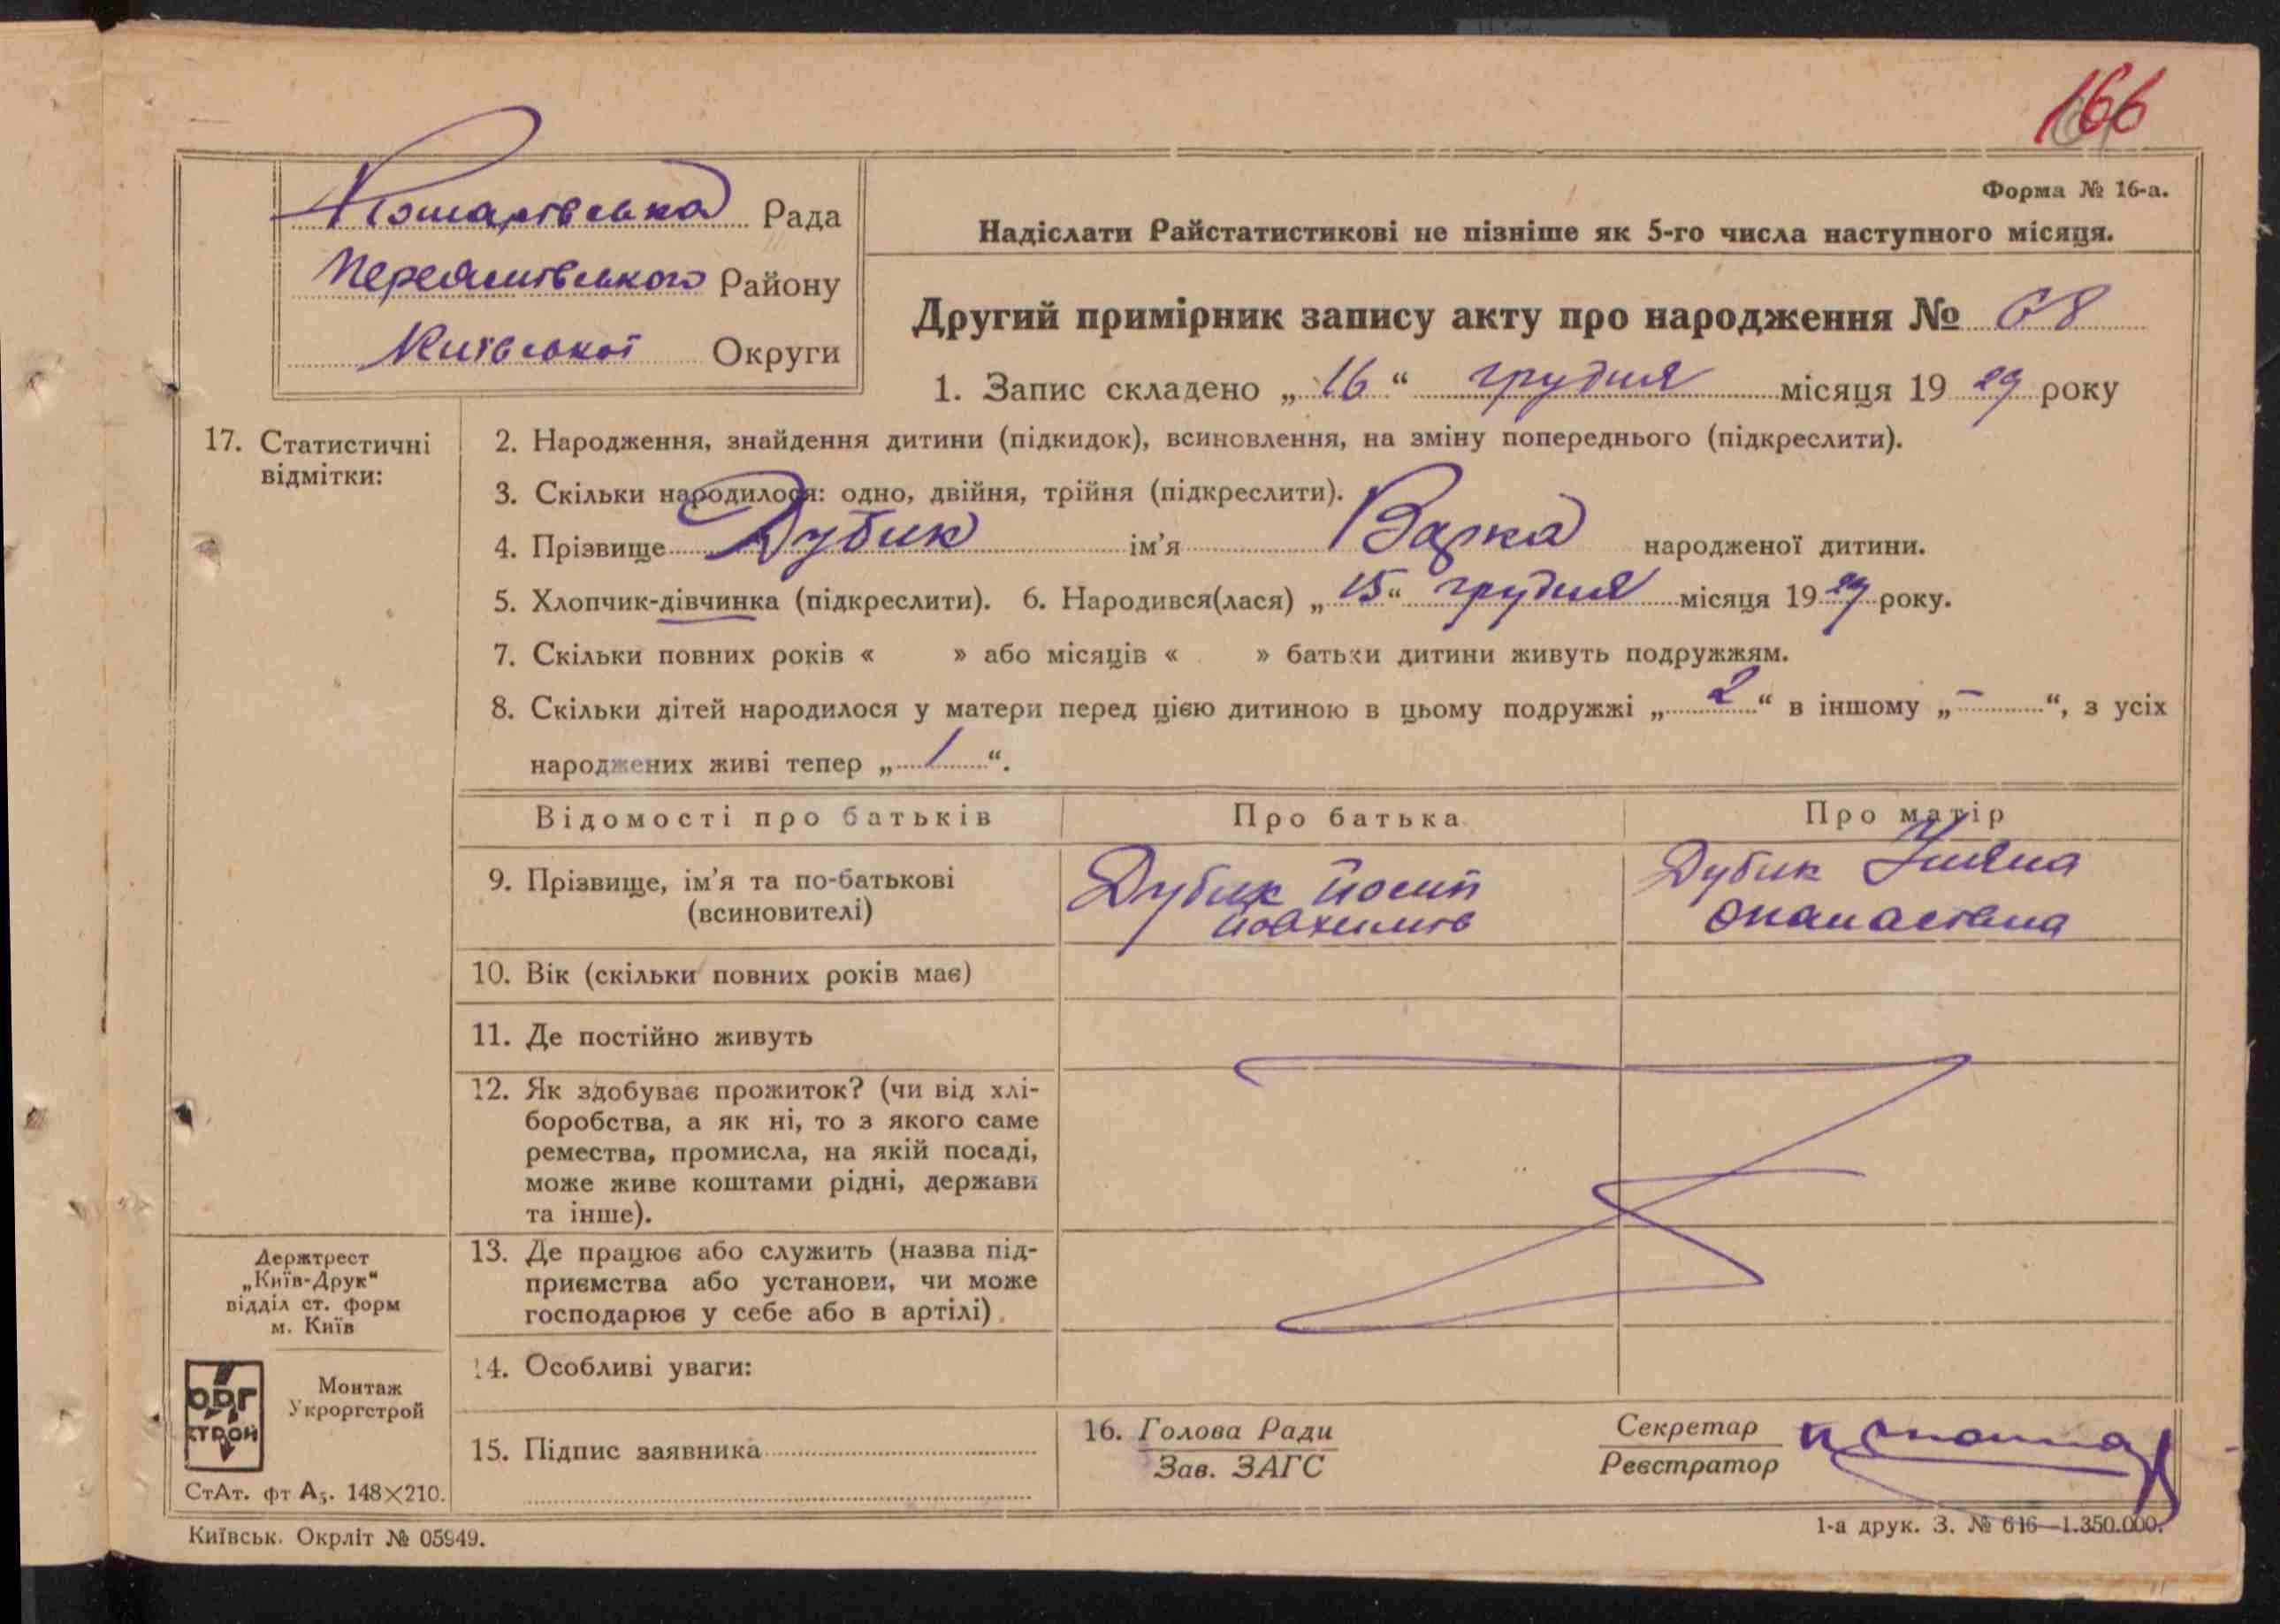 166
Форма № 16-а.
Помарівська Рада
Надіслати Райстатистикові не пізніше як 5-го числа наступного місяця.
Переяслівського Району
Другий примірник запису акту про народження № 68
Київської Округи
1. Запис складено „16“ грудня місяця 1929 року
17. Статистичні
відмітки:
2. Народження, знайдення дитини (підкидок), всиновлення, на зміну попереднього (підкреслити).
3. Скільки народилося: одно, двійня, трійня (підкреслити).
4. Прізвище Дубик ім’я Варка народженої дитини.
5. Хлопчик-дівчинка (підкреслити). 6. Народився(лася) „15“ грудня місяця 1929 року.
7. Скільки повних років « » або місяців « » батьки дитини живуть подружжям.
8. Скільки дітей народилося у матери перед цією дитиною в цьому подружжі „2“ в іншому „–“, з усіх
народжених живі тепер „1“.
Відомості про батьків Про батька Про матір
9. Прізвище, ім’я та по-батькові
(всиновителі)
Дубик Йосип
Йовхимів
Дубик Уляна
Опанасівна
10. Вік (скільки повних років має)
11. Де постійно живуть
12. Як здобуває прожиток? (чи від хлі-
боробства, а як ні, то з якого саме
ремества, промисла, на якій посаді,
може живе коштами рідні, держави
та інше).
13. Де працює або служить (назва під-
приємства або установи, чи може
господарює у себе або в артілі)
14. Особливі уваги:
15. Підпис заявника
16. Голова Ради
Зав. ЗАГС
Секретар
Реєстратор
Держтрест
„Київ-Друк“
відділ ст. форм
м. Київ
ОРГ
СТРОЙ
Монтаж
Укроргстрой
СтАт. фт А₅. 148×210.
Київськ. Окрліт № 05949.
1-а друк. З. № 616—1.350.000.